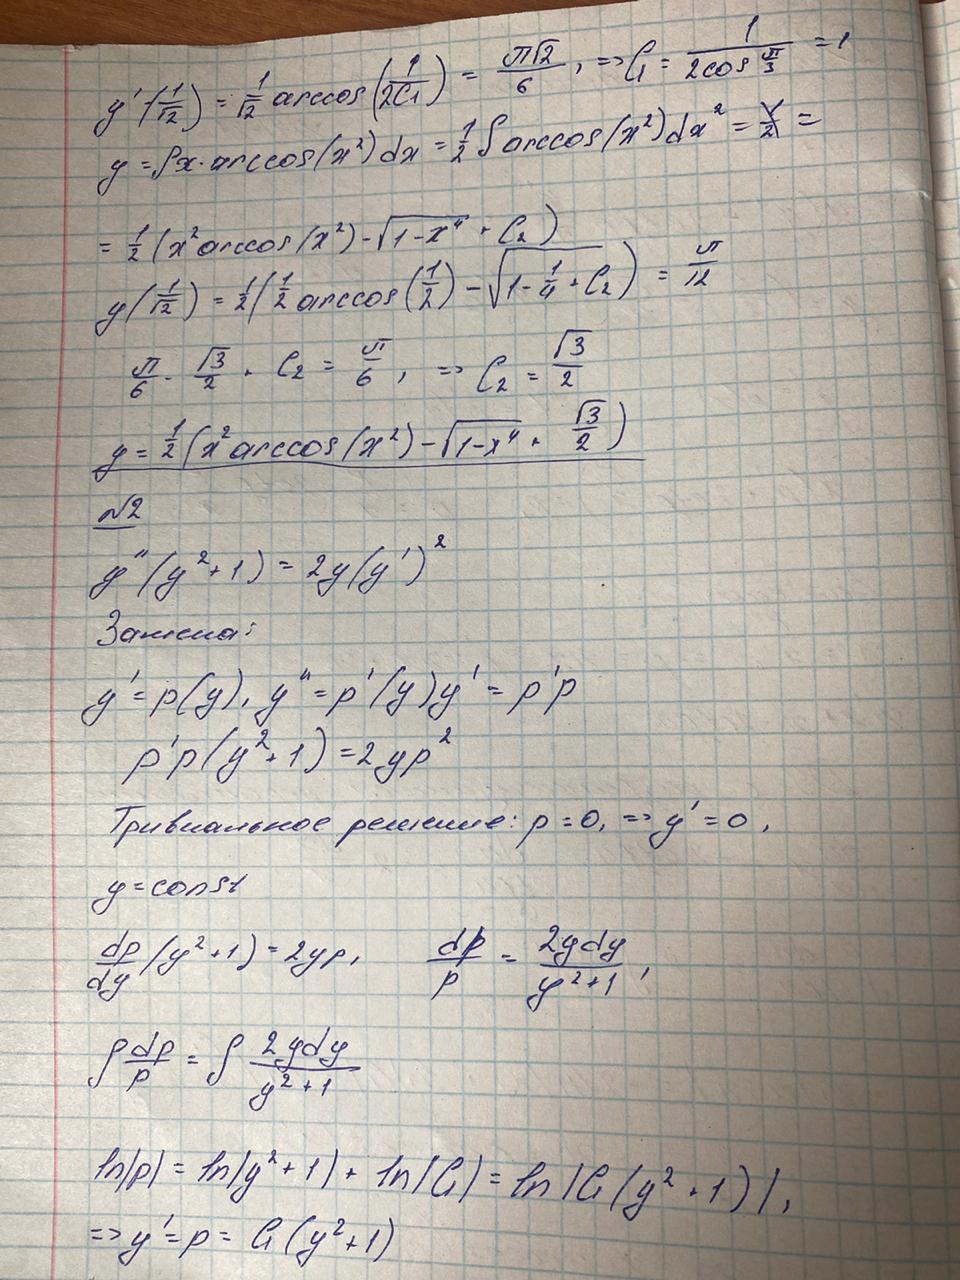 y'(1/√2) = 1/√2 arccos(1/2C₁) = π√2/6, => C₁ = 1/(2cos π/3) = 1
y = ∫x·arccos(x²)dx = 1/2 ∫arccos(x²)dx² =
= 1/2 (x² arccos(x²) - √(1-x⁴) + C₂)
y(1/√2) = 1/2(1/2 arccos(1/2) - √(1 - 1/4) + C₂) = π/12
π/6 - √3/2 + C₂ = π/6, => C₂ = √3/2
y = 1/2(x² arccos(x²) - √(1-x⁴) + √3/2)
№2
y''(y²+1) = 2y(y')²
Замена:
y' = p(y), y'' = p'(y)y' = p'p
p'p(y²+1) = 2yp²
Тривиальное решение: p = 0, => y' = 0,
y = const
dp/dy (y²+1) = 2yp, dp/p = 2ydy/(y²+1),
∫dp/p = ∫2ydy/(y²+1)
ln|p| = ln|y²+1| + ln|C₁| = ln|C₁(y²+1)|,
=> y' = p = C₁(y²+1)